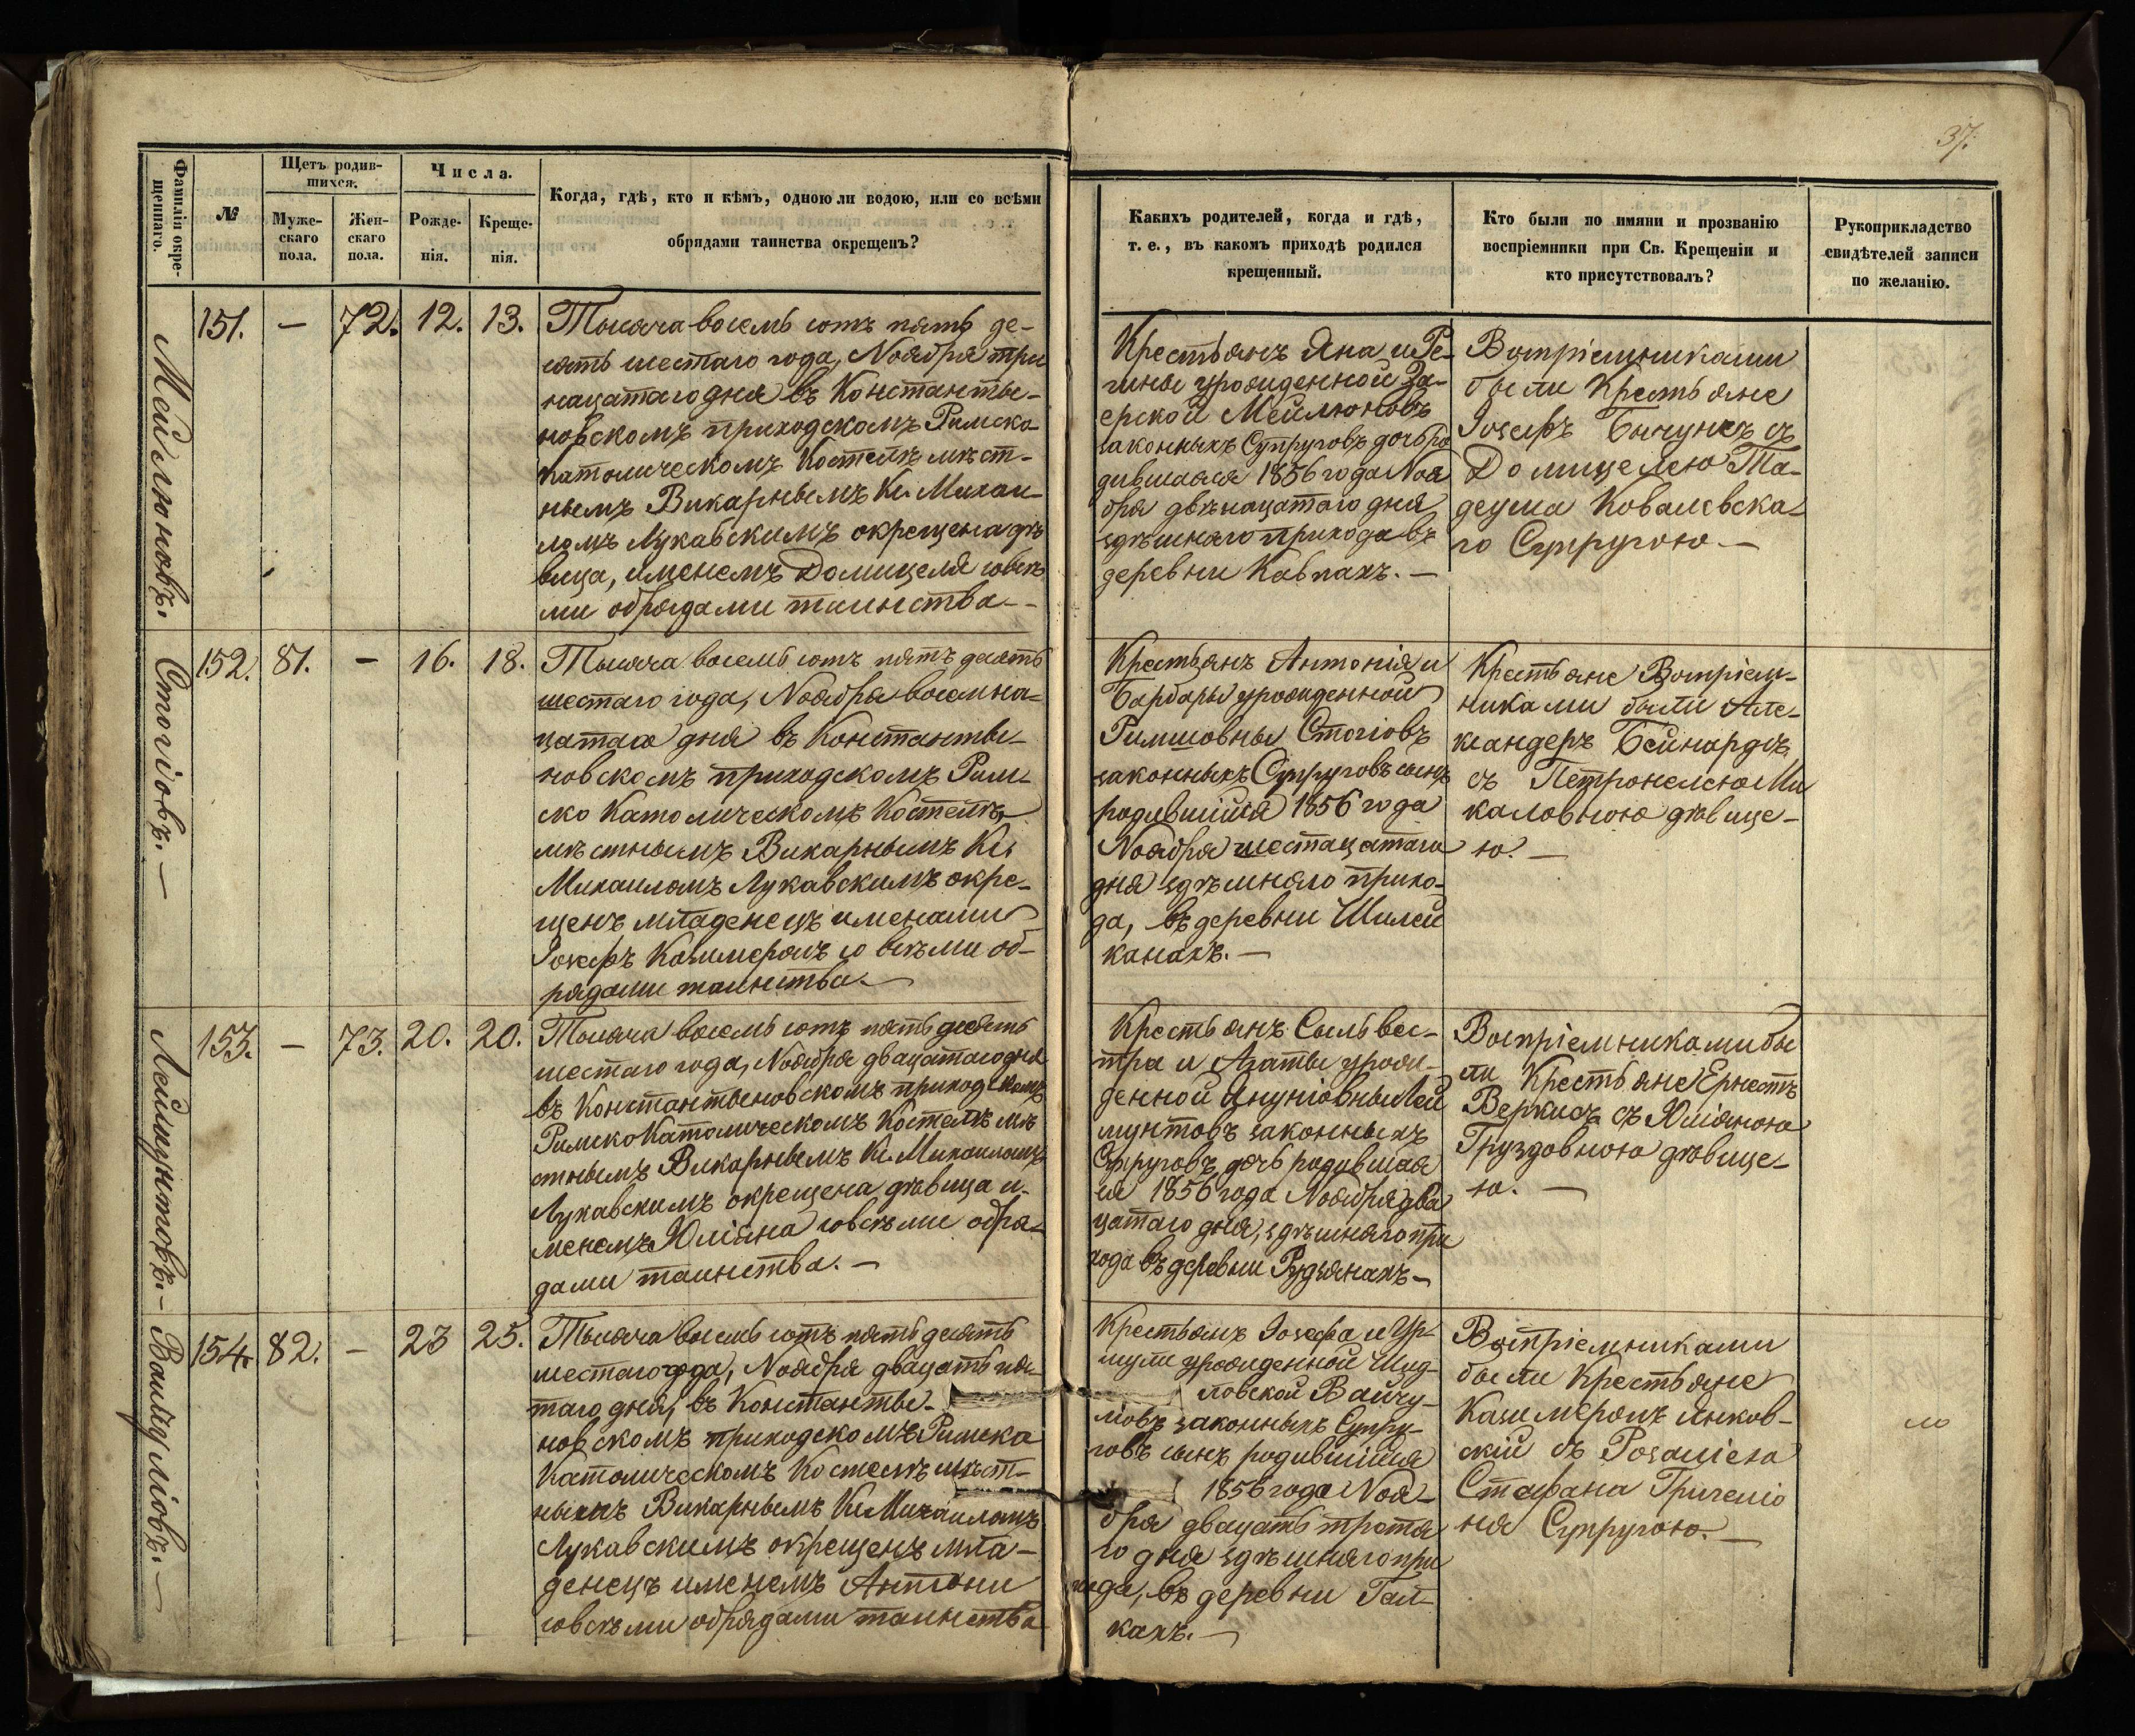 37.
Фамилiи окре-
щеннаго.
№
Щетъ родив-
шихся.
Муже-
скаго
пола.
Жен-
скаго
пола.
Числа.
Рожде-
нiя.
Креще-
нiя.
Когда, гдѣ, кто и кѣмъ, одною ли водою, или со всѣми
обрядами таинства окрещенъ?
Какихъ родителей, когда и гдѣ,
т. е., въ какомъ приходѣ родился
крещенный.
Кто были по имяни и прозванiю
воспрiемники при Св. Крещенiи и
кто присутствовалъ?
Рукоприкладство
свидѣтелей записи
по желанiю.
Мейлюновъ.
151. — 72. 12. 13.
Тысяча восемь сотъ пять де-
сять шестаго года, Ноября три
нацатаго дня въ Константы-
новскомъ приходскомъ Римско
Католическомъ Костелѣ мѣст-
нымъ Викарнымъ Кс. Михаи-
ломъ Лукавскимъ окрещена дѣ
вица, именемъ Домицеля совсѣ
ми обрядами таинства. -
Крестьянъ Яна и Ре-
гины урожденной За-
ерской Мейлюновъ
законныхъ Супруговъ дочь ро
дившаяся 1856 года Ноя
бря двѣнацатаго дня
здѣшняго прихода въ
деревни Кавпахъ. —
Воспрiемниками
были Крестьяне
Iозефъ Бичунъ съ
Домицелею Та-
деуша Ковалевска-
го Супругою —
Стогiовъ. —
152. 81. — 16. 18.
Тысяча восемь сотъ пять десять
шестаго года, Ноября восемна-
цатаго дня въ Константы-
новскомъ приходскомъ Рим-
ско Католическомъ Костелѣ,
мѣстнымъ Викарнымъ Кс.
Михаиломъ Лукавскимъ окре-
щенъ младенецъ именами
Iозефъ Казимеръ со всѣми об-
рядами таинства. —
Крестьянъ Антонiя и
Барбары урожденной
Римшовны Стогiовъ
законныхъ Супруговъ сынъ
родившiйся 1856 года
Ноября шестацатаго
дня здѣшняго прихо-
да, въ деревни Шилей
канахъ. —
Крестьяне Воспрiем-
никами были Але-
ксандеръ Бейнардъ
съ Петронелею Ми
каловною дѣвице-
ю. —
Леймунтовъ. —
153. — 73. 20. 20.
Тысяча восемь сотъ пять десять
шестаго года, Ноября двацатаго дня
въ Константыновскомъ приходскомъ
Римско Католическомъ Костелѣ мѣ
стнымъ Викарнымъ Кс. Михаиломъ
Лукавскимъ окрещена дѣвица и-
менемъ Юлiяна совсѣми обря-
дами таинства. —
Крестьянъ Сыльвес-
тра и Агаты урож-
денной Янунiовны Лей
мунтовъ законныхъ
Супруговъ дочь родившая
ся 1856 года Ноября два
цатаго дня, здѣшняго при
хода въ деревни Рудзянахъ —
Воспрiемниками бы
ли Крестьяне Ернестъ
Веркисъ съ Юлiяною
Груздовною дѣвице-
ю. —
Вайчулiовъ. —
154. 82. — 23 25.
Тысяча восемь сотъ пять десять
шестаго года, Ноября двацать пя-
таго дня, въ Константы-
новскомъ приходскомъ Римско
Католическомъ Костелѣ мѣст-
нымъ Викарнымъ Кс. Михаиломъ
Лукавскимъ окрещенъ мла-
денецъ именемъ Антони
совсѣми обрядами таинства
Крестьянъ Iозефа и Ур-
шули урожденной Шид-
ловской Вайчу-
лiовъ законныхъ Супру-
говъ сынъ родившiйся
1856 года Ноя-
бря двацать третья
го дня здѣшняго при
хода, въ деревни Гай-
кахъ. —
Воспрiемниками
были Крестьяне
Казимеръ Янков-
скiй съ Розалiею
Стефана Григелiо
ня Супругою. —